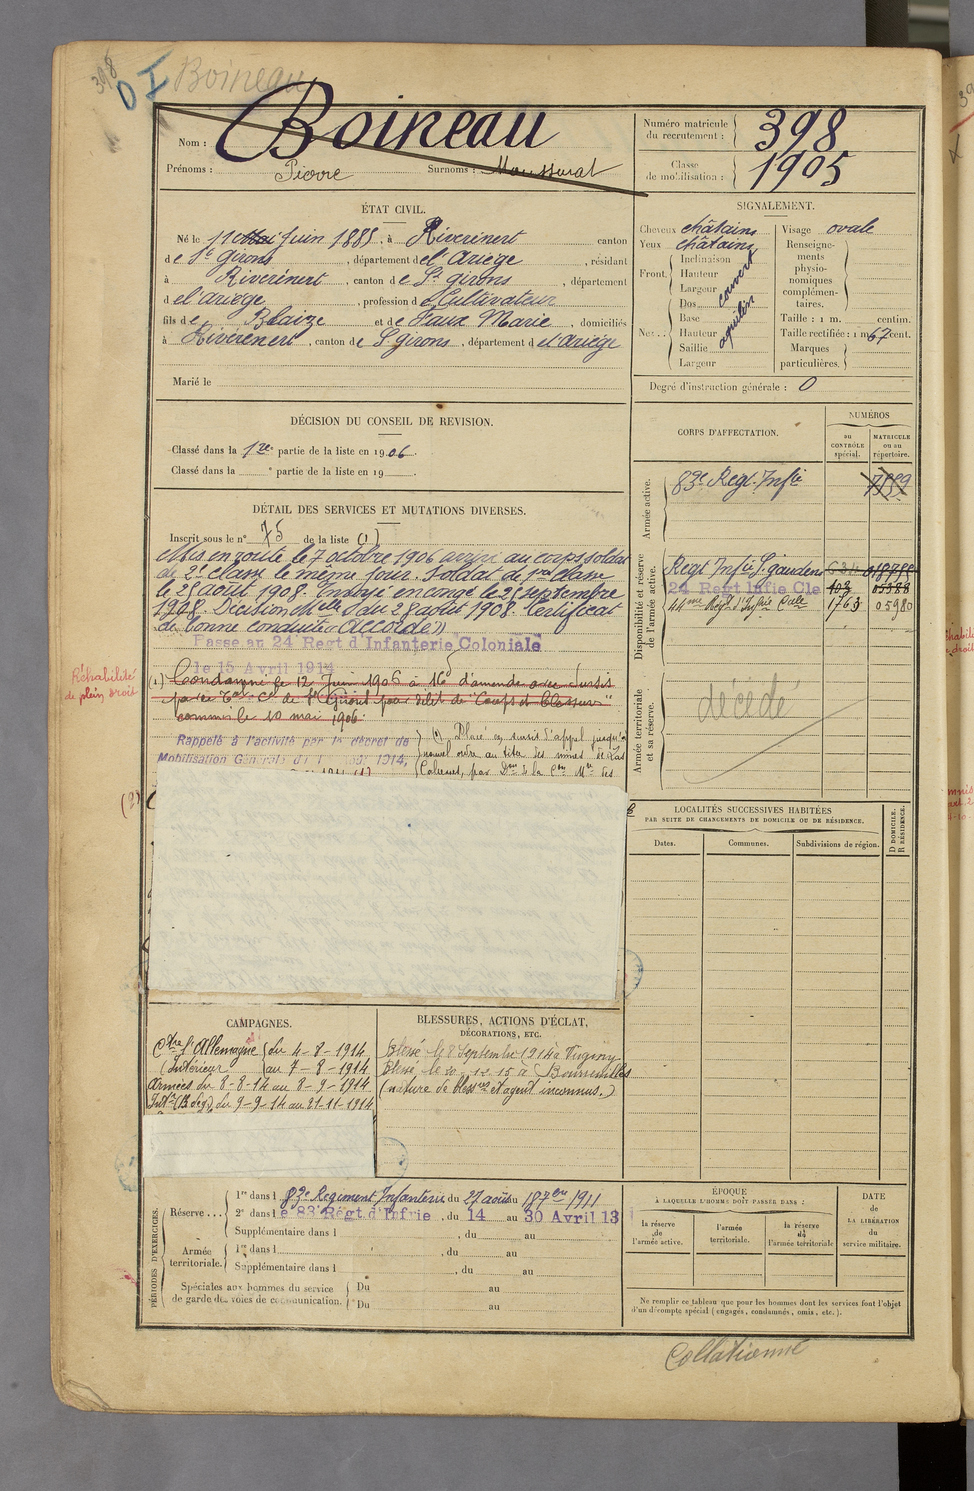 398
DI Boineau
Nom : Boineau
Prénoms : Pierre Surnoms : Moussurat
Numéro matricule du recrutement : 398
Classe de mobilisation : 1905
ÉTAT CIVIL.
Né le 11 Mai Juin 1885, à Riverénert canton
de St Girons, département de l'Ariège, résidant
à Riverénert, canton de St girons, département
d el'ariège, profession d Cultivateur
fils de Blaize et de Faux Marie, domiciliés
à Riverénert, canton de St girons, département d el'ariège
Marié le
SIGNALEMENT.
Cheveux châtains
Yeux châtains
Front. Inclinaison Hauteur Largeur couvert
Nez.. Dos Base Hauteur Saillie Largeur aquilin
Visage ovale
Renseignements physionomiques complémentaires.
Taille : 1 m. centim.
Taille rectifiée : 1 m 67 cent.
Marques particulières.
Degré d'instruction générale : 0
DÉCISION DU CONSEIL DE REVISION.
Classé dans la 1re partie de la liste en 1906.
Classé dans la e partie de la liste en 19
DÉTAIL DES SERVICES ET MUTATIONS DIVERSES.
Inscrit sous le n° 75 de la liste (1)
Mis en route le 7 octobre 1906 arrivé au corps soldat
de 2e classe le même jour. Soldat de 1re classe
le 25 août 1908. Envoyé en congé le 25 septembre
1908. Décision Mlle du 28 août 1908. Certificat
de bonne conduite "Accordé"
Passe au 24 Regt d'Infanterie Coloniale
le 15 Avril 1914
Réhabilité
de plein droit
(1) Condamné le 12 Juin 1906 à 16f d'amende avec Sursis
par le St Girons pour délit de "Coups et Blessures"
commis le 10 mai 1906.
Rappelé à l'activité par le décret de
Mobilisation Générale
(2) Placé en sursis d'appel jusqu'à
nouvel ordre au titre des mines de
par la
(2)
CORPS D'AFFECTATION.
NUMÉROS
au CONTRÔLE spécial.
MATRICULE ou au répertoire.
Armée active.
83e Regt Infie
Disponibilité et réserve de l'armée active.
Regt Infie St gaudens
24 Regt Infie Cle 403 05388
44me Regt d'Infie Cale 1763 05980
Armée territoriale et sa réserve.
décédé
LOCALITÉS SUCCESSIVES HABITÉES
PAR SUITE DE CHANGEMENTS DE DOMICILE OU DE RÉSIDENCE.
Dates.
Communes.
Subdivisions de région.
D DOMICILE. R RÉSIDENCE.
CAMPAGNES.
Ctre l'Allemagne du 4-8-1914
(Intérieur au 7-8-1914
Armées du 8-8-14 au 8-9-1914
Intr (B. deg.) du 9-9-14 au 21-11-1914
BLESSURES, ACTIONS D'ÉCLAT,
DÉCORATIONS, ETC.
Blessé le 8 Septembre 1914 à
Blessé le
(nature de blessres et agent inconnus.)
PÉRIODES D'EXERCICES.
Réserve ...
1re dans l 83e Regiment Infanterie du 22 août au 1911
2e dans l e 83 Régt d'Infrie, du 14 au 30 Avril 13
Supplémentaire dans l , du au
Armée territoriale.
1re dans l , du au
Supplémentaire dans l , du au
Spéciales aux hommes du service
de garde des voies de communication.
Du au
Du au
ÉPOQUE
À LAQUELLE L'HOMME DOIT PASSER DANS :
la réserve de l'armée active.
l'armée territoriale.
la réserve de l'armée territoriale
DATE
de
LA LIBÉRATION
du
service militaire.
Ne remplir ce tableau que pour les hommes dont les services font l'objet
d'un décompte spécial (engagés, condamnés, omis, etc.).
Collationné